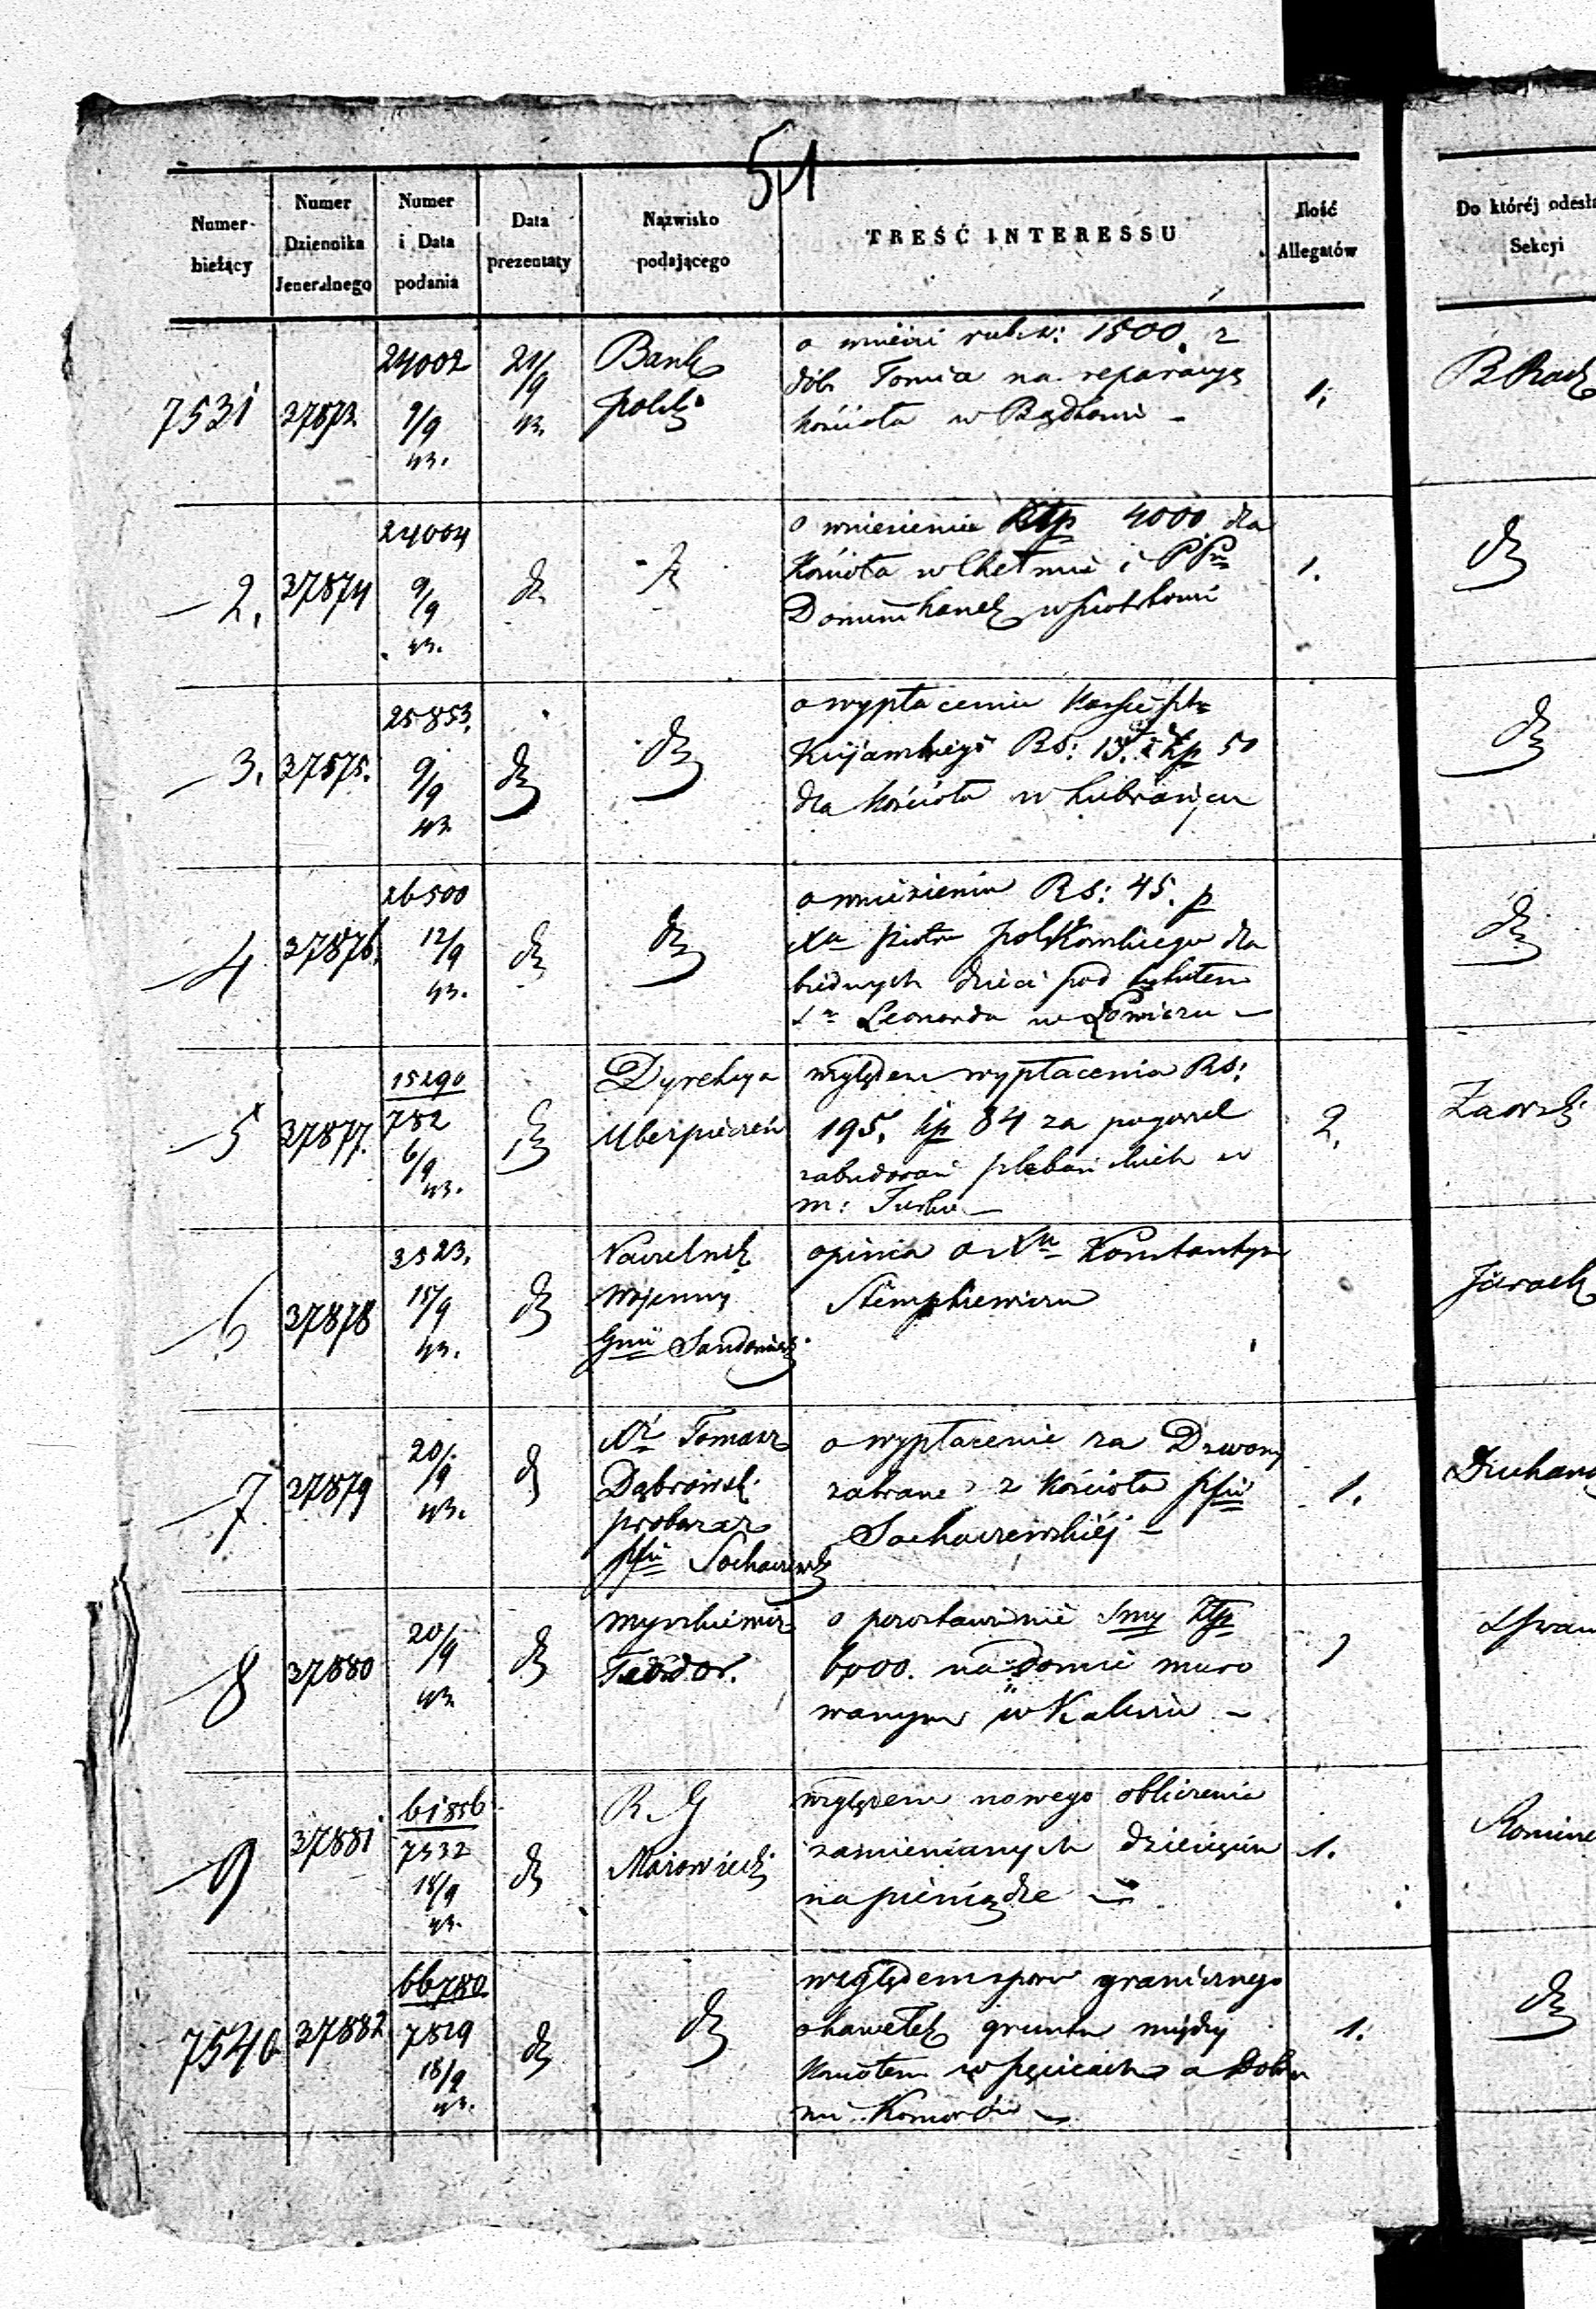 51
Numer bieżący
Numer Dziennika Jeneralnego
Numer i Data podania
Data prezentaty
Nazwisko podającego
TREŚĆ INTERESSU
Ilość Allegatów
Do któréj odesła
Sekcyi
7531 37873 24002 9/9 43. 21/9 43. Bank polski
o rub. s: 1500. z
dób. Tomia na reparacyą
kościoła w
1.
B Rach
2. 37874 24004 9/9 43. dt
o wniesienie Złp 4000 dla
Kościoła w Chełmie i PP
Dominikanek w Piotrkowie
1.
dt
3. 37875. 25853. 9/9 43 dt dt
o wypłacenie
Kujawskiego Rs: 15. kp 50
dla kościoła w Lubrańcu
dt
4 37876. 26500 12/9 43. dt dt
o wniesienie Rs: 45. p
Xa Piotra dla
biednych dzieci pod tytułem
Sgo Leonarda w Łowiczu —
dt
5 37877. 15290
782
6/9 43. dt
Dyrekcya
Ubezpieczeń
względem wypłacenia Rs:
195. kp 84 za pogorzel
zabudowań plebańskich w
m: Turku —
2.
6 37878 3523. 15/9 43. dt
Naczelnik
Wojenny
Gnii Sandomirs
opinia o Xu Konstantym
Stempkiewiczu
7 37879 20/9 43. dt
Xdz Tomasz
Dąbrowski
proboszcz
pfii Sochaczewsk
o wypłacenie za Dzwony
zabrane z Kościoła pfii
Sochaczewskiéj —
1.
8 37880 20/9 43 dt
Teodor.
o pozostawienie Smy Złp
6,000. na Domie muro
wanym w Kaliszu —
1
9 37881 61856
7532
18/9 43. dt
R G
Mazowiecki
względem nowego obliczenia
zamienianych dziesięcin
na pieniądze —
1.
7540 37882 66780
7819
18/9 43. dt dt
względem sporu granicznego
o kawałek gruntu między
Kościołem w Pęcicach a Dobra
mi Komorów —
1.
dt